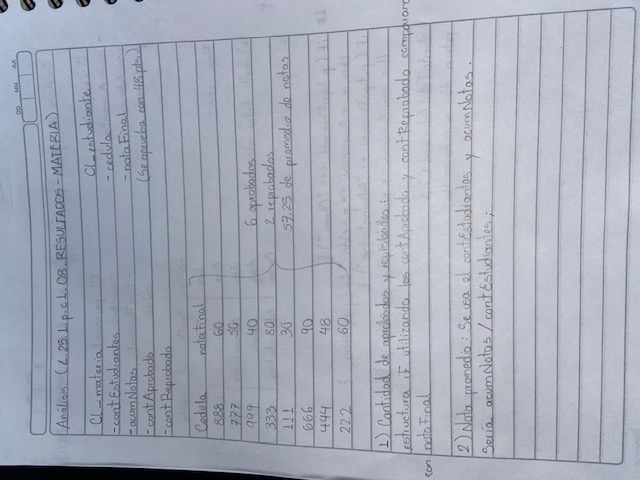 DD MM AA
Análisis (L.25.1.p.c1.08.RESULTADOS-MATERIA)
Cl_materia
-contEstudiantes
-acumNotas
-contAprobado
-contReprobado
Cl_estudiante
- cedula
- notaFinal
(Se aprueba con 48 pts)
Cedula notaFinal
888 60
777 50
999 40
333 80
111 30
666 90
444 48
222 60
6 aprobados
2 reprobados
57.25 de promedio de notas
1) Cantidad de aprobados y reprobados:
estructura if utilizando los contAprobado y contReprobado comparar
con notaFinal
2) Nota promedio: Se usa el contEstudiantes y acumNotas.
Sería acumNotas/contEstudiantes;